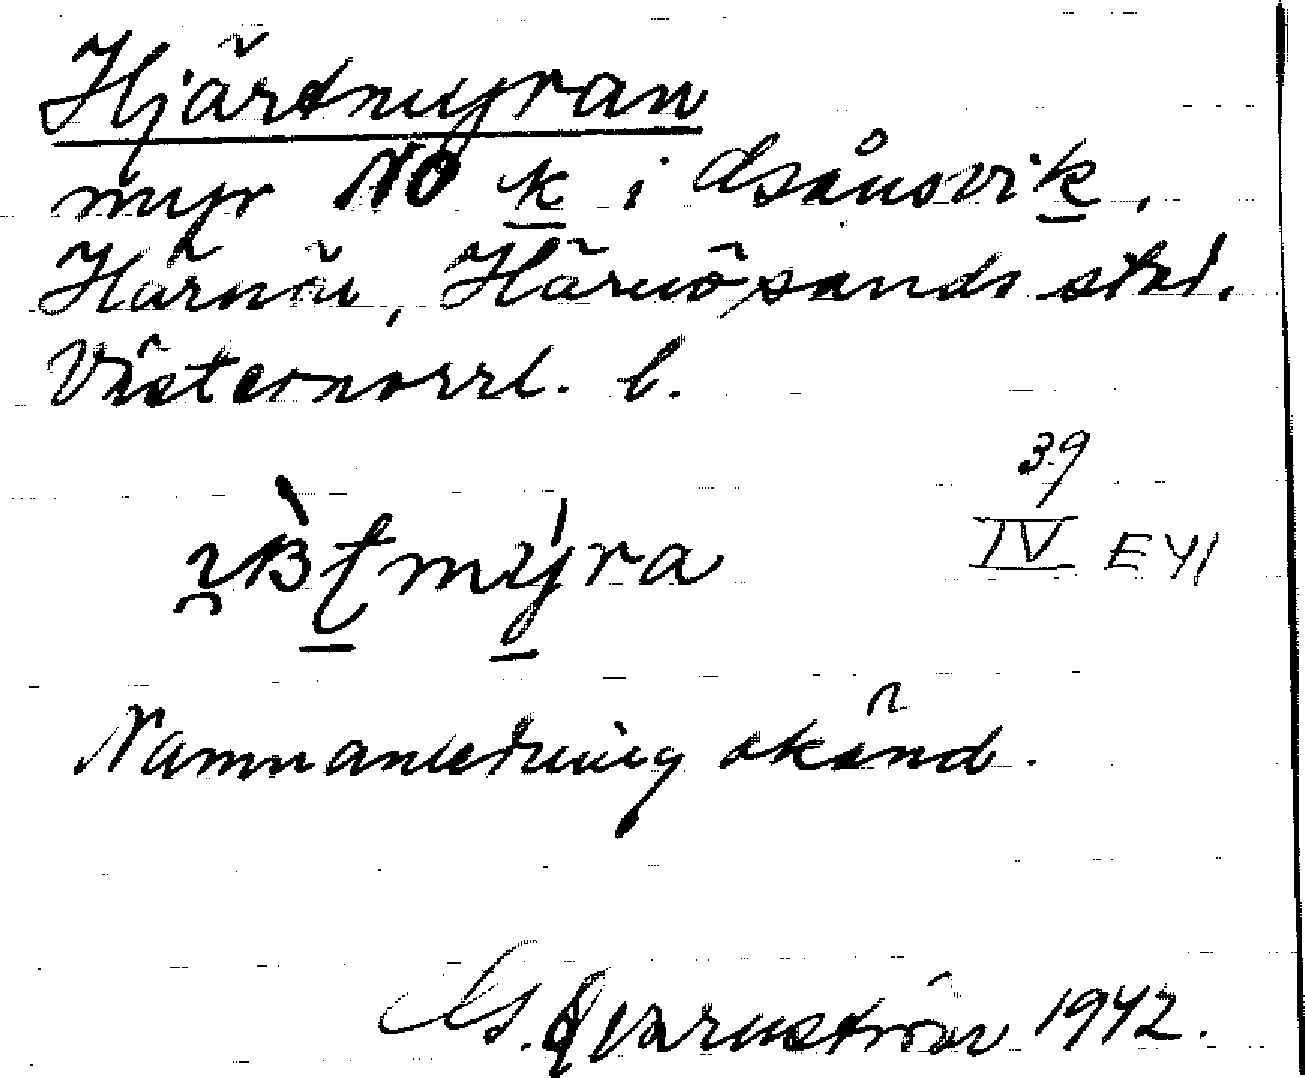 Hjärtmyran
myr NO k i Osånsvik,
Härnön, Härnösands skd.
Västernorrl. l.
39
IV E41
Namnanledning okänd.
G. Qvarnström 1942.